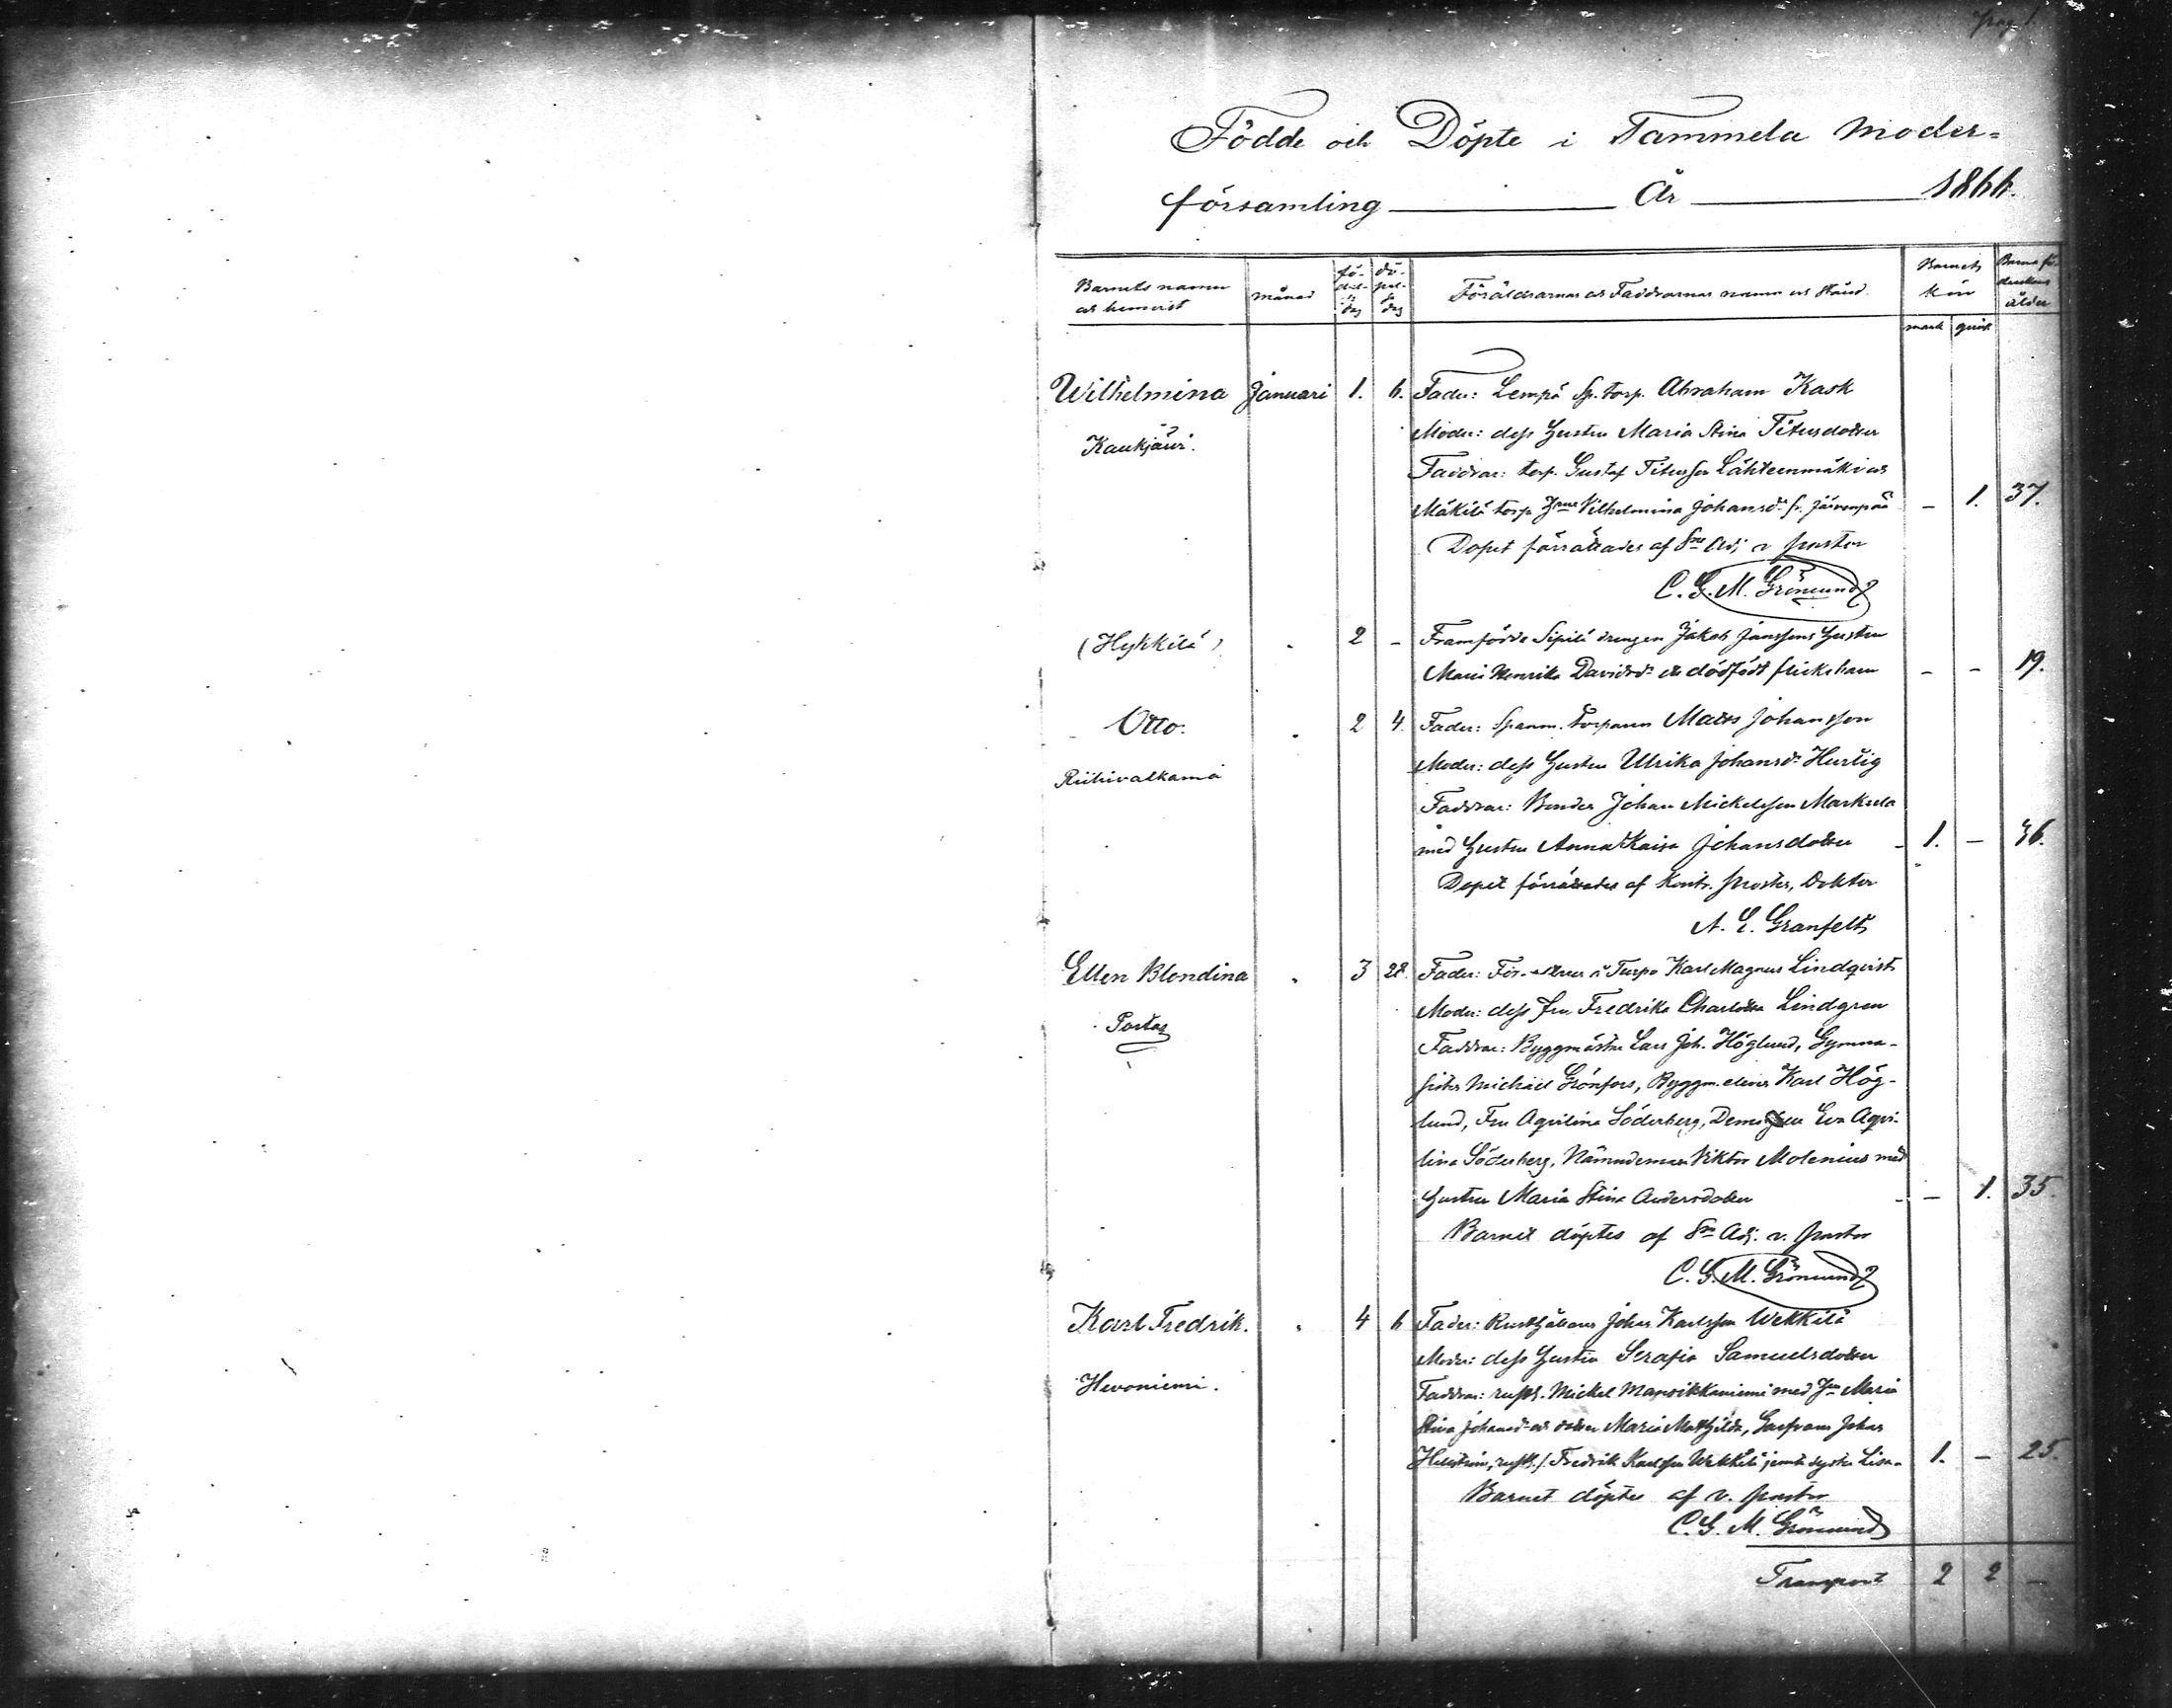 pag 1.
Födde och Döpte i Tammela Moder=
församling År 1866.
Barnets namn och hemvist
månad
fö-del-se dag
dö-pel-se dag
Föräldrarnas och Faddrarnas namn och stånd.
Barnets kön
mank
qvink
Barna föderskans ålder
Wilhelmina Januari 1. 6. Fader: Lempä Sp. torp. Abraham Kask
Kaukjärvi. Moder: dess hustru Maria Stina Titusdotter
Faddrar: torp. Gustaf Titusson Lähteenmäki och
Mäkilä torp. Vilhelmina Johansd:r fr. Järvenpää - 1. 37.
Dopet förrättades af Sne Adj v pastor
C. G. M. Grönlund
(Hykkilä) . 2 - Framförde Sipilä drengen Jakob Janssons hustru
Maria Henrika Davidsdr ett dödfödt flickebarn - - 19.
Otto. . 2 4. Fader: Spanm. torparen Matts Johansson
Riihivalkama Moder: dess hustru Ulrika Johansdr Hurtig
Faddrar: Bonden Johan Mickelsson Markula
med hustru Anna Kaisa Johansdotter - 1. - 36.
Dopet förrättades af Kontr. prosten, Doktor
A. F. Granfelt
Ellen Blondina . 3 28. Fader: Karl Magnus Lindqvist
Portas Moder: dess fru Fredrika Charlotta Lindgren
Faddrar: Byggmästar Lars Joh. Höglund, Gymna-
sisten Michael Grönfors, Byggm. eleven Karl Hög-
lund, Fru Aqvilina Söderberg, Demoisellen Eva Aqvi-
lina Söderberg, Nämndeman Viktor Molenius med
hustru Maria Stina Andersdotter - - 1. 35.
Barnet döptes af Sne Adj. v. pastor
C. G. M. Grönlund
Karl Fredrik. . 4 6 Fader: Rusthållaren Johan Karlsson Wekkilä
Hevoniemi. Moder: dess hustru Serafia Samuelsdotter
Faddrar: rusth. Mickel Mansikkaniemi med Hu Maria
Stina Johansdr och dotter Maria Mathilda, Garfvaren Johan
Hellström, rusth. s. Fredrik Karlsson Wekkilä jemte syster Lisa. 1. - 25.
Barnet döptes af v. pastor
C. G. M. Grönlund
Transport 2 2 -